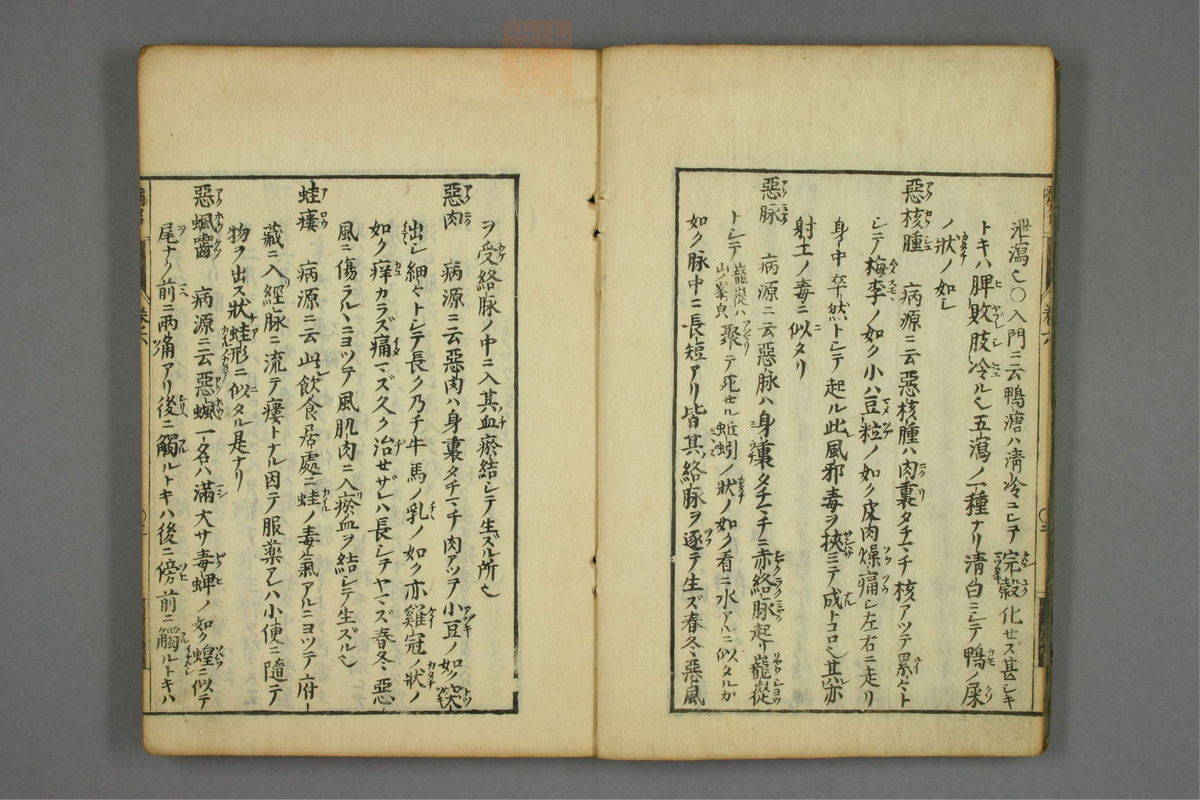 泄瀉也〇入門ニ云鴨溏ハ清冷ニシテ完穀化セズ甚シキ
トキハ脾敗肢冷ル也五瀉ノ一種ナリ清白ニシテ鴨ノ屎
ノ狀ノ如シ
惡核腫 病源ニ云惡核腫ハ肉裏タチマチ核アツテ累々ト
シテ梅李ノ如ク小ハ豆粒ノ如ク皮肉燥痛シ左右ニ走リ
身中卒然トシテ起ル此風邪毒ヲ挾ミテ成トコロ也其亦
射工ノ毒ニ似タリ
惡脉 病源ニ云惡脉ハ身裏タチマチニ赤絡脉起リ巃嵸
トシテ巃嵸ハ山ノ峯皃聚テ死セル蚯蚓ノ狀ノ如ク看ニ水アルニ似タルガ
如ク脉中ニ長短アリ皆其絡脉ヲ逐テ生ズ春冬惡風
ヲ受絡脉ノ中ニ入其血瘀結シテ生ズル所也
惡肉 病源ニ云惡肉ハ身裏タチマチ肉アツテ小豆ノ如ク突
出シ細々トシテ長ク乃チ牛馬ノ乳ノ如ク亦雞冠ノ狀ノ
如ク痒カラズ痛マズ久ク治セザレハ長シテヤマズ春冬惡
風ニ傷ラルヽニヨツテ風肌肉ニ入瘀血ヲ結シテ生ズル也
蛙瘻 病源ニ云此飲食居處ニ蛙ノ毒氣アルニヨツテ府
藏ニ入經脉ニ流テ瘻トナル因テ服藥アレハ小便ニ隨テ
物ヲ出ス狀蛙形ニ似タル是ナリ
惡䘍 病源ニ云惡一名ハ滿大サ毒蜱ノ如ク蝗ニ似テ
尾ナク前ニ兩角アリ後ニ觸ルトキハ後ニ傍前ニ觸ルトキハ